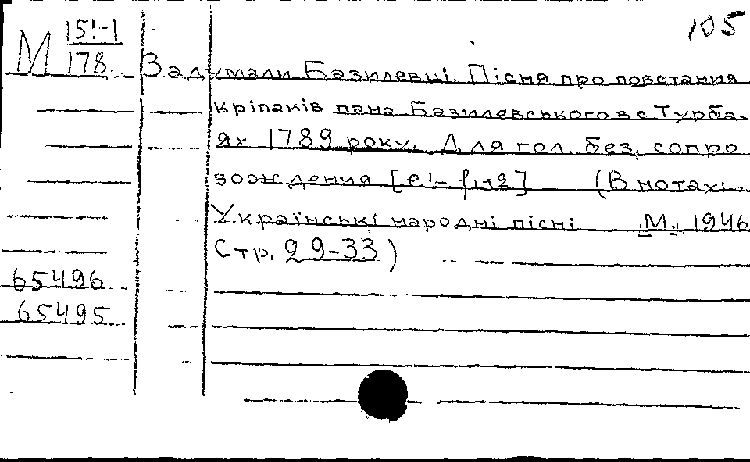 105
М 15!-1
178
Задумали Базилевці. Пісня про повстання
кріпаків пана Базилевського в с Турба-
ях 1789 року. Для гол. без. сопро
вождения [e!- f#2] (В нотах:
Українські народні пісні М. 1946
Стр. 29-33)
65496
65495